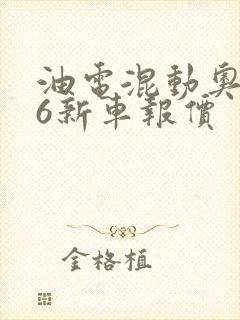 油電混動奧
6新車報價
金格植